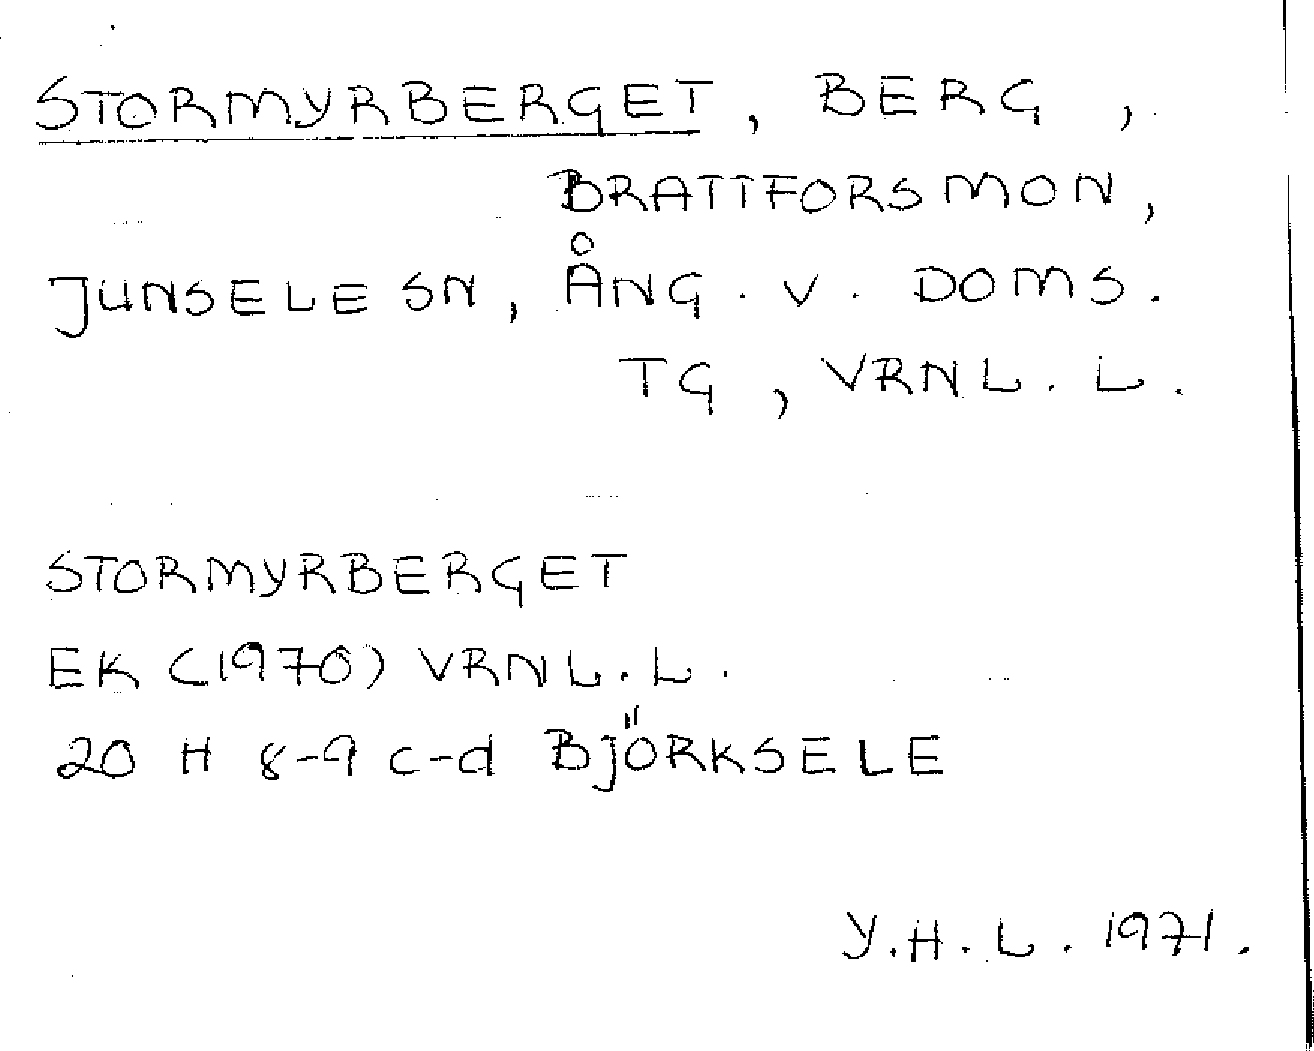 STORMYRBERGET, BERG,
BRATTFORSMON,
JUNSELE SN, ÅNG. V. DOMS.
TG, VRNL. L.
STORMYRBERGET
EK (1970) VRNL. L.
20 H 8-9 c-d BJÖRKSELE
Y.H.L. 1971.